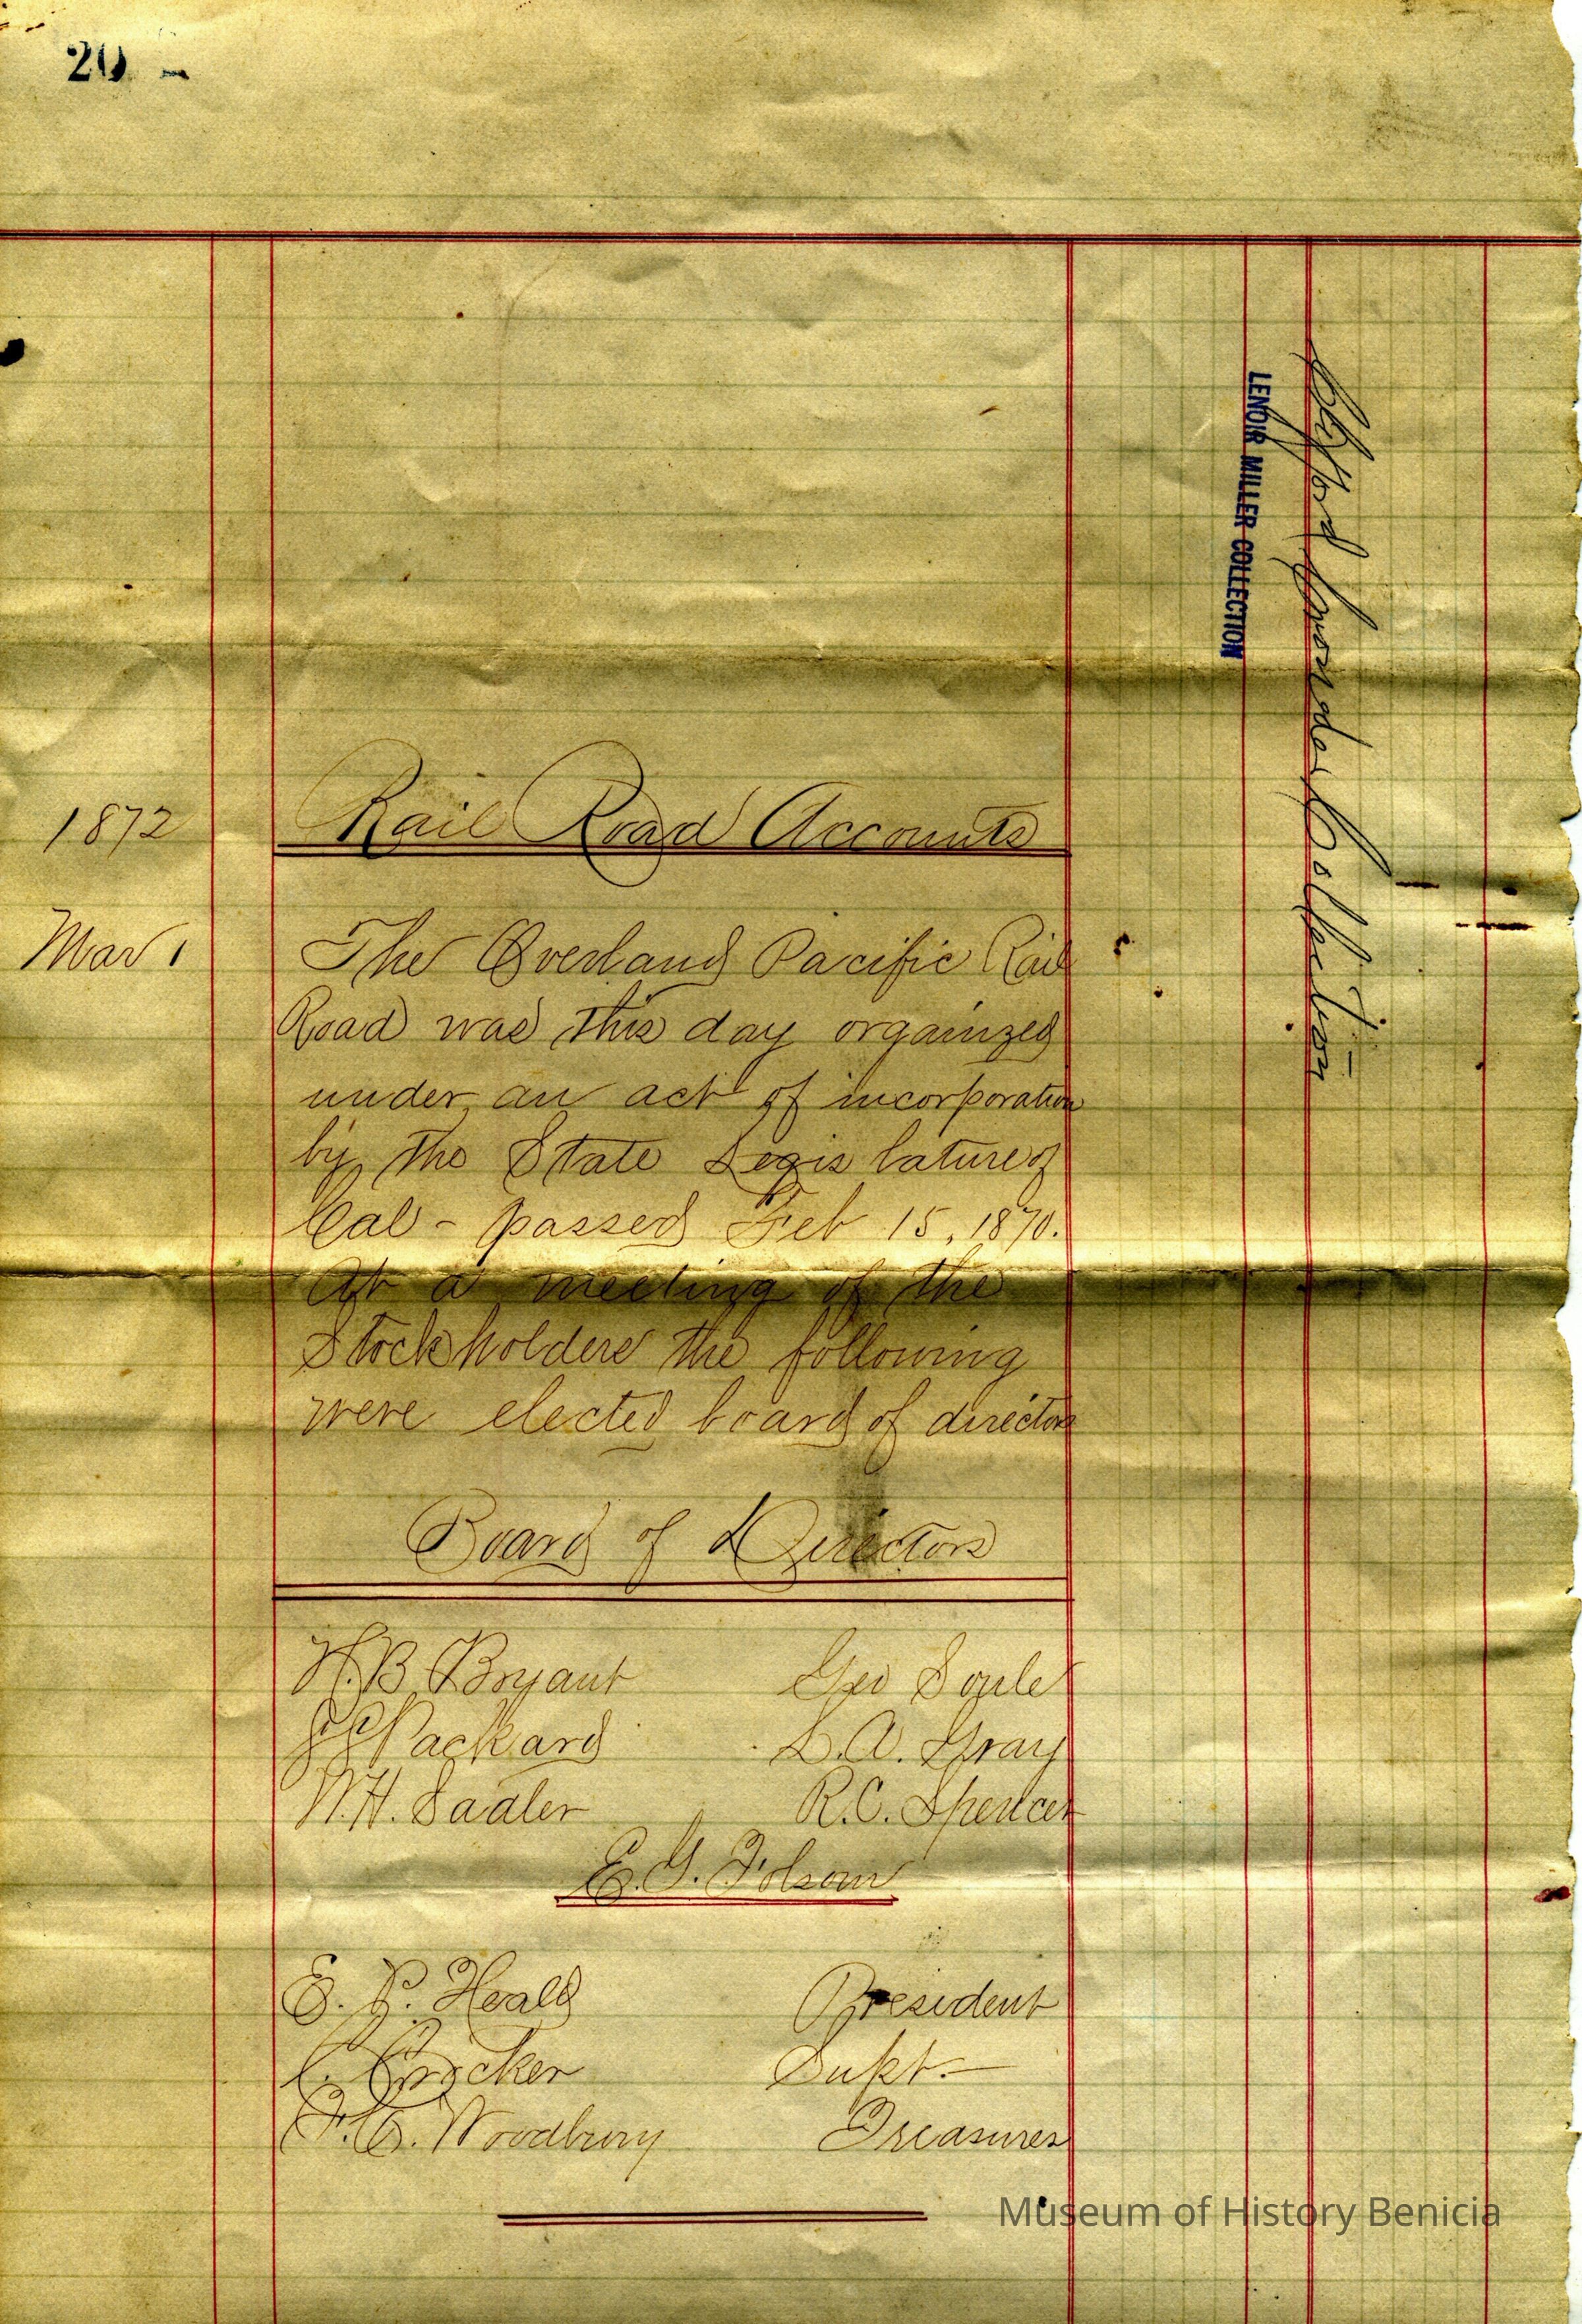 20
1872 Rail Road Accounts
Mar 1 The Overland Pacific Rail
Road was this day organized
under an act of incorporation
by the State Legislature of
Cal - passed Feb 15, 1870.
At a meeting of the
Stockholders the following
were elected board of directors
Board of Directors
H.B. Bryant Geo Soule
S.S. Packard L.A. Gray
W.H. Sadler R.C. Spencer
E.G. Folsom
E. P. Heald President
C. Crocker Supt.-
F.C. Woodbury Treasurer
LENOIR MILLER COLLECTION
Collection
Museum of History Benicia